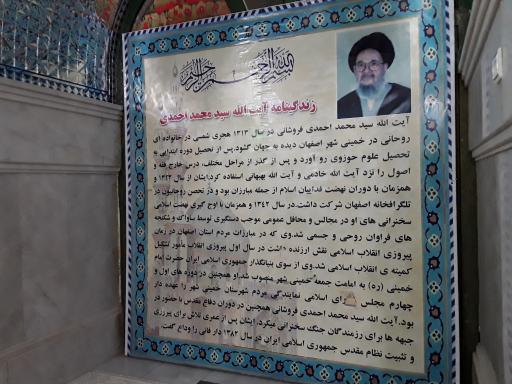 بسم الله الرحمن الرحیم
زندگینامه آیت الله سید محمد احمدی
آیت الله سید محمد احمدی فروشانی در سال ۱۳۱۳ هجری شمسی در خانواده ای
روحانی در خمینی شهر اصفهان دیده به جهان گشود.پس از تحصیل دوره ابتدایی به
تحصیل علوم حوزوی رو آورد و پس از گذر از مراحل مختلف، درس خارج فقه و
اصول را نزد آیت الله خادمی و آیت الله بهبهانی استفاده کرد.ایشان از سال ۱۳۴۲ و
همزمان با دوران نهضت فداییان اسلام از جمله مبارزان بود و در تحصن روحانیون در
تلگرافخانه اصفهان شرکت داشت.در سال ۱۳۴۲ و همزمان با اوج گیری نهضت اسلامی
سخنرانی های او در مجالس و محافل عمومی موجب دستگیری توسط ساواک و شکنجه
های فراوان روحی و جسمی شد.وی که در مبارزات مردم استان اصفهان در زمان
پیروزی انقلاب اسلامی نقش ارزنده داشت در سال اول پیروزی انقلاب مأمور تشکیل
کمیته ی انقلاب اسلامی شد.وی از سوی بنیانگذار جمهوری اسلامی ایران حضرت امام
خمینی (ره) به امامت جمعه خمینی شهر منصوب شد.او همچنین در دوره های اول و
چهارم مجلس شورای اسلامی نمایندگی مردم شهرستان خمینی شهر را عهده دار
بود. آیت الله سید محمد احمدی فروشانی همچنین در دوران دفاع مقدس با حضور در
جبهه ها برای رزمندگان جنگ سخنرانی میکرد. ایشان پس از عمری تلاش برای پیروزی
و تثبیت نظام مقدس جمهوری اسلامی ایران در سال ۱۳۸۲ دار فانی را وداع گفت.